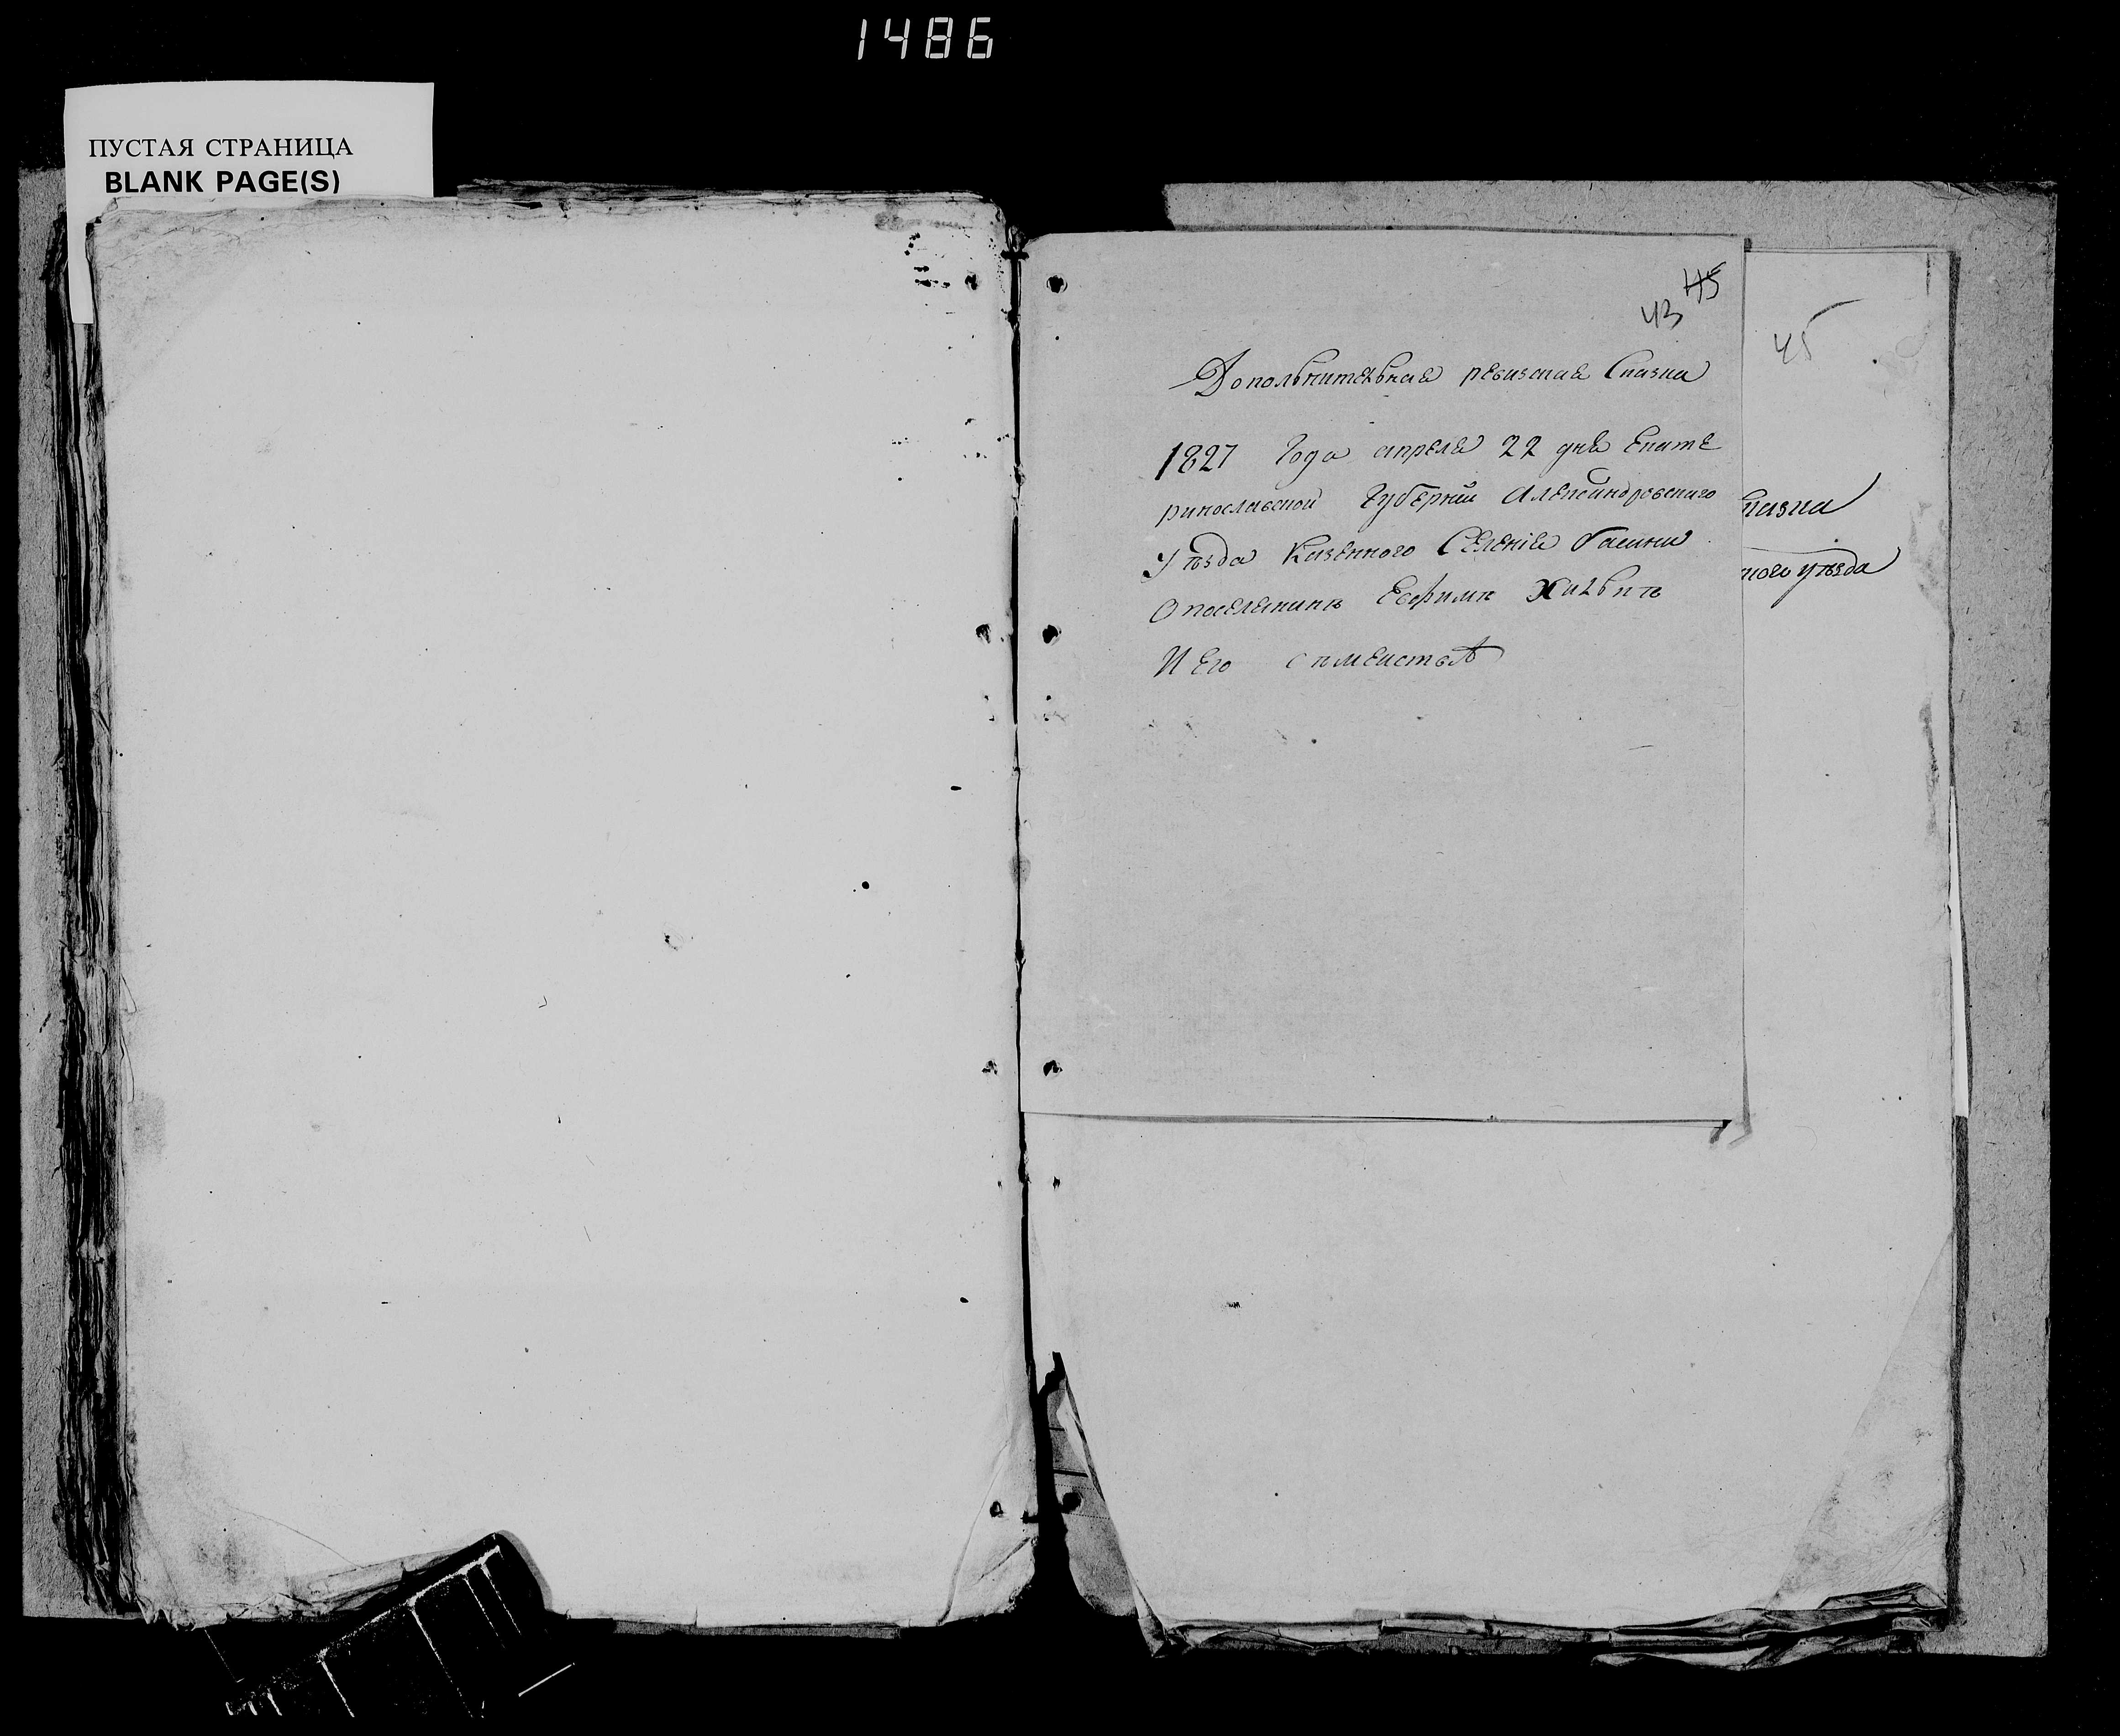 1486
ПУСТАЯ СТРАНИЦА
BLANK PAGE(S)
45
43
45
Дополънителъная ревизская Сказка
1827 Года апреля 22 дня Екате
ринославской Губернии Александровскаго
Уѣзда Казенного Селения
О поселянинѣ Евфимѣ
И Его симеиства
казка
ного уѣзда